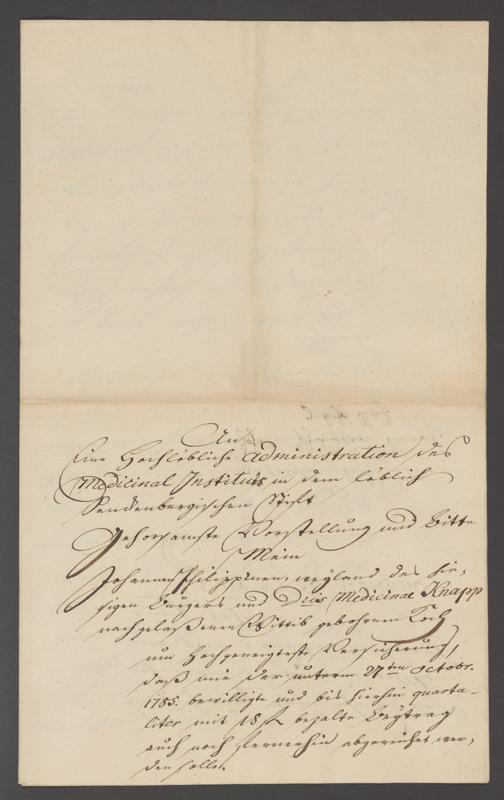 An
Eine Hochlöbliche Administration des
Medicinal Instituts in dem löblich
Senckenbergischen Stift
Gehorsamste Vorstellung und Bitte
Mein
Johannen Philippinen, weyland des hie-
sigen Burgers und Dris Medicinae Knapp
nachgelaßenen Wittib gebohrnen Koch
um Hochgeneigteste Versicherung,
daß mir der unterm 27ten Octobr.
1785. bewilligte und bis hierhin quarta-
liter mit 18 f. bezalte Beytrag
auch noch fernerhin abgereichet wer-
den solle.